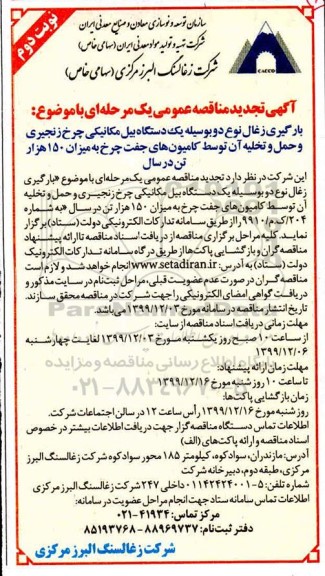 نوبت دوم
سازمان توسعه و نوسازی معادن و صنایع معدنی ایران
شرکت تهیه و تولید مواد معدنی ایران (سهامی خاص)
شرکت زغالسنگ البرز مرکزی (سهامی خاص)
آگهی تجدید مناقصه عمومی یک مرحله‌ای با موضوع:
بارگیری زغال نوع دو بوسیله یک دستگاه بیل مکانیکی چرخ زنجیری
و حمل و تخلیه آن توسط کامیون‌های جفت چرخ به میزان ۱۵۰ هزار
تن در سال
این شرکت در نظر دارد تجدید مناقصه عمومی یک مرحله‌ای با موضوع «بارگیری
زغال نوع دو بوسیله یک دستگاه بیل مکانیکی چرخ زنجیری و حمل و تخلیه
آن توسط کامیون‌های جفت چرخ به میزان ۱۵۰ هزار تن در سال» به شماره
۲۰۴/ک/۹۹۱۰ را از طریق سامانه تدارکات الکترونیکی دولت (ستاد) برگزار
نماید. کلیه مراحل برگزاری مناقصه از دریافت اسناد مناقصه تا ارائه پیشنهاد
مناقصه گران و بازگشایی پاکت‌ها از طریق درگاه سامانه تدارکات الکترونیک
دولت (ستاد) به آدرس: www.setadiran.ir انجام خواهد شد و لازم است
مناقصه گران در صورت عدم عضویت قبلی، مراحل ثبت نام در سایت مذکور و
دریافت گواهی امضای الکترونیکی را جهت شرکت در مناقصه محقق سازند.
تاریخ انتشار مناقصه در سامانه مورخ ۱۳۹۹/۱۲/۰۳ می‌باشد.
مهلت زمانی دریافت اسناد مناقصه از سایت:
از ساعت ۱۰ صبح روز یکشنبه مورخ ۱۳۹۹/۱۲/۰۳ لغایت چهارشنبه
۱۳۹۹/۱۲/۰۶
مهلت زمان ارائه پیشنهاد:
تا ساعت ۱۰ روز شنبه مورخ ۱۳۹۹/۱۲/۱۶
زمان بازگشایی پاکت‌ها:
روز شنبه مورخ ۱۳۹۹/۱۲/۱۶ رأس ساعت ۱۲ در سالن اجتماعات شرکت.
اطلاعات تماس دستگاه مناقصه گزار جهت دریافت اطلاعات بیشتر در خصوص
اسناد مناقصه و ارائه پاکت‌های (الف)
آدرس: مازندران، سوادکوه، کیلومتر ۱۸۵ محور سوادکوه شرکت زغالسنگ البرز
مرکزی، طبقه دوم، دبیرخانه شرکت
شماره تلفن: ۵-۰۱۱۴۲۴۲۴۰۰۱ داخلی ۲۴۷ شرکت زغالسنگ البرز مرکزی
اطلاعات تماس سامانه ستاد جهت انجام مراحل عضویت در سامانه:
مرکز تماس: ۴۱۹۳۴-۰۲۱
دفتر ثبت نام: ۸۸۹۶۹۷۳۷ - ۸۵۱۹۳۷۶۸
شرکت زغالسنگ البرز مرکزی